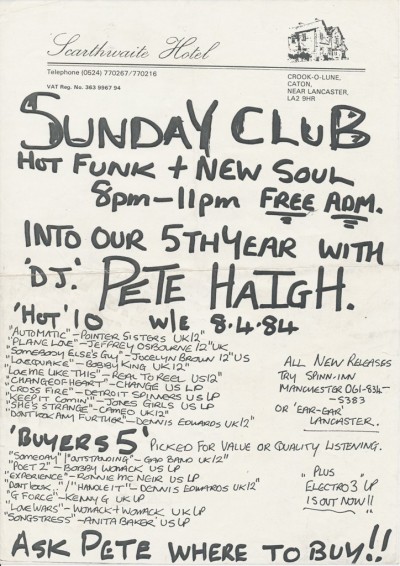 Scarthwaite Hotel
Telephone (0524) 770267/770216
VAT Reg. No. 363 9967 94
CROOK-O-LUNE,
CATON,
NEAR LANCASTER,
LA2 9HR
SUNDAY CLUB
HOT FUNK + NEW SOUL
8pm-11pm FREE ADM.
INTO OUR 5TH YEAR WITH
'DJ.' PETE HAIGH.
'HOT' 10 W/E 8.4.84
"AUTOMATIC" - POINTER SISTERS UK 12"
"PLANE LOVE" - JEFFREY OSBOURNE 12" UK
"SOMEBODY ELSE'S GUY" - JOCELYN BROWN 12" US
"LOVEQUAKE" - BOBBY KING UK 12"
"LOVE ME LIKE THIS" - REAL TO REEL US 12"
"CHANGE OF HEART" - CHANGE US LP
"CROSS FIRE" - DETROIT SPINNERS US LP
"KEEP IT COMIN'" - JONES GIRLS US LP
"SHE'S STRANGE" - CAMEO UK 12"
"DON'T LOOK ANY FURTHER" - DENNIS EDWARDS UK 12"
ALL NEW RELEASES
TRY SPINN-INN
MANCHESTER 061-834-
5383
OR 'EAR-EAR'
LANCASTER.
'BUYERS 5' PICKED FOR VALUE OR QUALITY LISTENING.
"SOMEDAY"/"OUTSTANDING" - GAP BAND UK 12"
"POET 2" - BOBBY WOMACK US LP
"EXPERIENCE" - RONNIE MC NEIR US LP
"DONT LOOK.."/"HANDLE IT" - DENNIS EDWARDS UK 12"
"G FORCE" - KENNY G UK LP
"LOVE WARS" - WOMACK + WOMACK UK LP
"SONGSTRESS" - ANITA BAKER US LP
"PLUS
ELECTRO 3" LP
IS OUT NOW!!
ASK PETE WHERE TO BUY!!